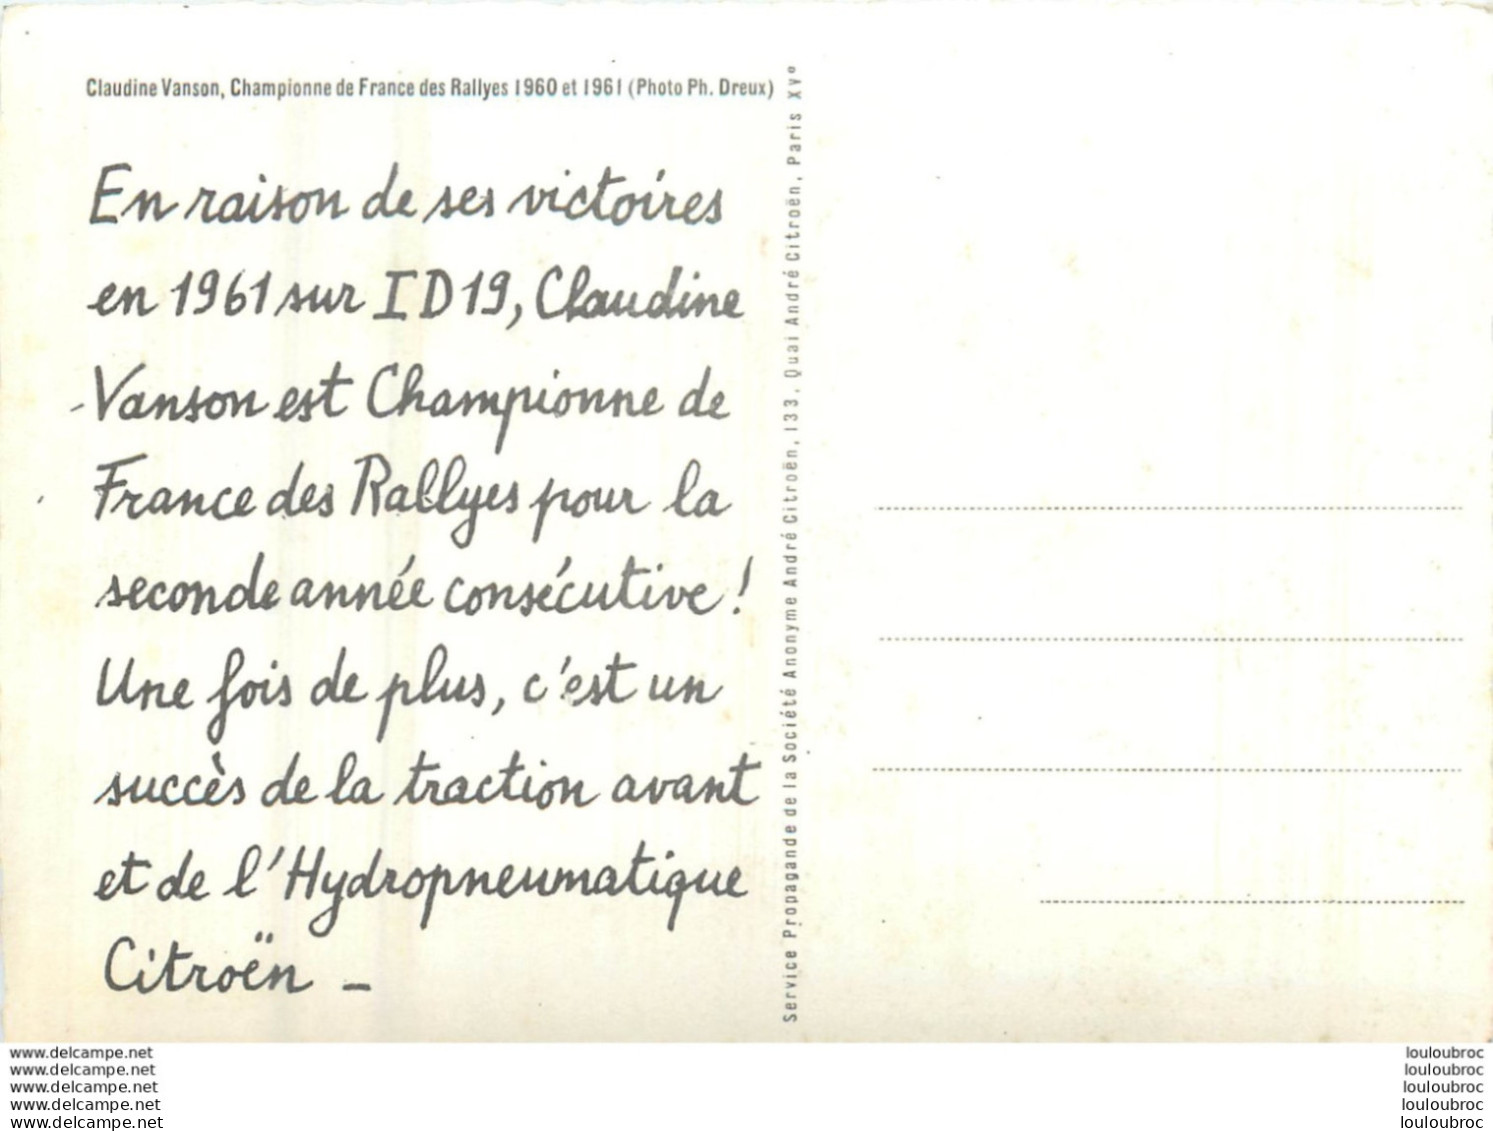 Claudine Vanson, Championne de France des Rallyes 1960 et 1961 (Photo Ph. Dreux)
En raison de ses victoires
en 1961 sur ID19, Claudine
Vanson est Championne de
France des Rallyes pour la
seconde année consécutive !
Une fois de plus, c'est un
succès de la traction avant
et de l'Hydropneumatique
Citroën -
Service Propagande de la Société Anonyme André Citroën, 133, Quai André Citroën, Paris XVe
www.delcampe.net
www.delcampe.net
www.delcampe.net
www.delcampe.net
www.delcampe.net
louloubroc
louloubroc
louloubroc
louloubroc
louloubroc